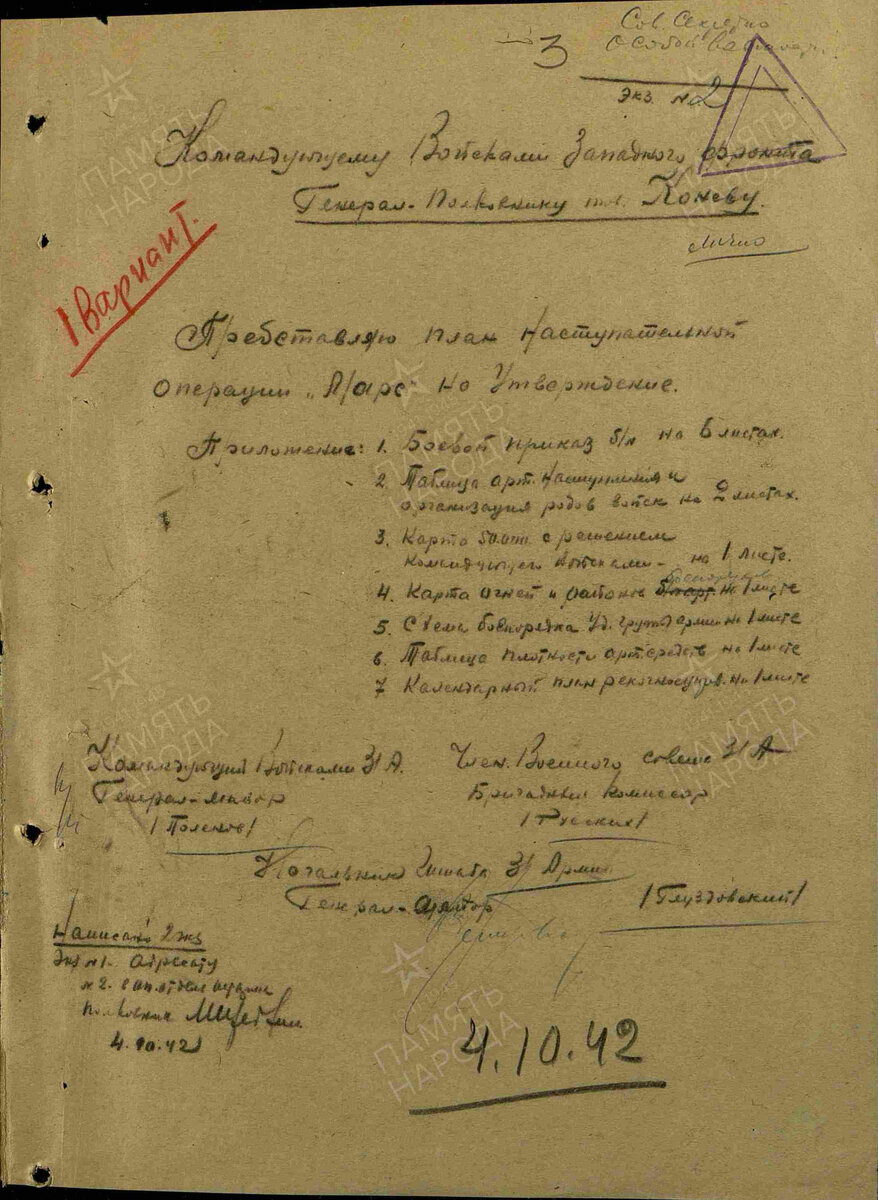 Сов. Секретно
Особой важности
3
Экз. №2
Командующему Войсками Западного фронта
Генерал-Полковнику тов. Коневу.
лично
1 Вариант.
Представляю план наступательной
операции "Марс" на Утверждение.
Приложение: 1. Боевой приказ б/н на 6 листах.
2. Таблица арт. наступления и
организация родов войск на 2 листах.
3. Карта 50.000 с решением
Командующего Войсками – на 1 листе.
4. Карта огней и районов на 1 листе
5. Схема боепорядка Уд. группы армии на 1 листе
6. Таблица плотности артсредств на 1 листе
7 Календарный план рекогносциров. на 1 листе
Командующий Войсками 31 А.
Генерал-майор
/Поленов/
Член Военного совета 31 А
Бригадный Комиссар
/Русских/
Начальник Штаба 31 Армии
Генерал-майор
/Глуздовский/
Написано 2 экз
Экз №1. Адресату
№2. в опотдел армии
полковник
4.10.42
4.10.42
ПАМЯТЬ
НАРОДА